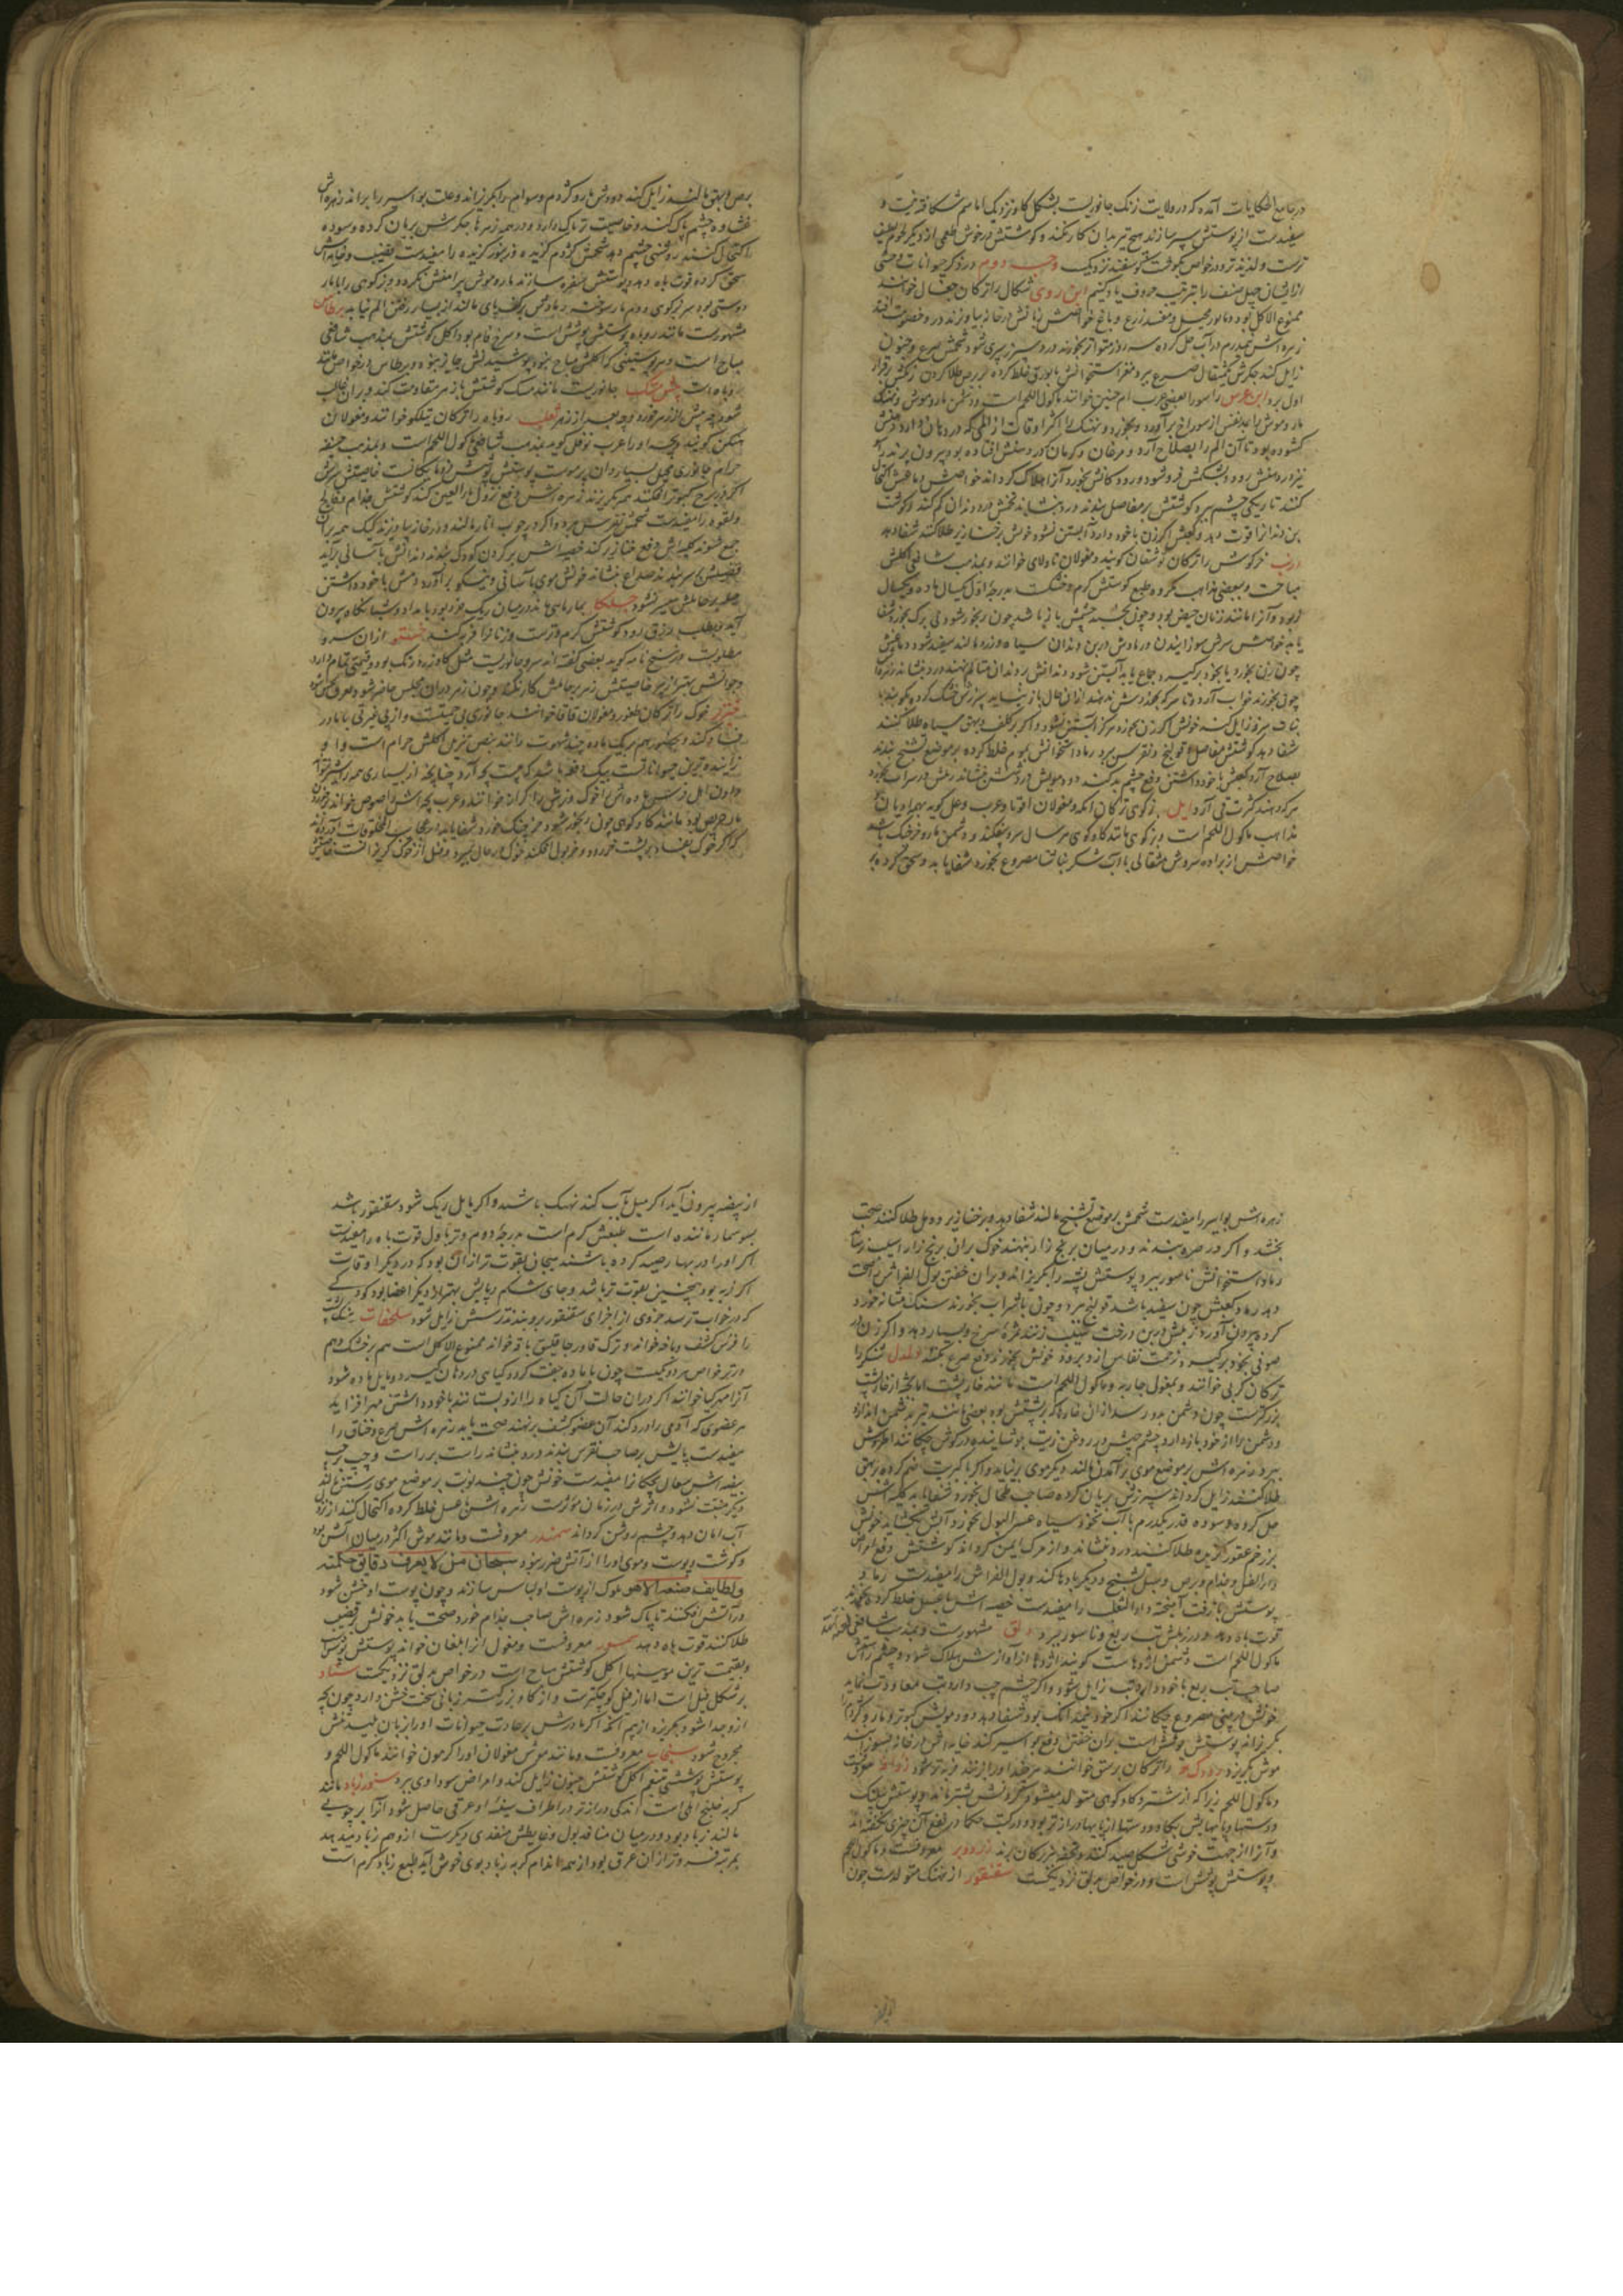 در جامع الحکایات آمده که در ولایت زنک جانوریست بشکل کاو نزدیک اما سم شکافته نیست و
سفیدست از پوستش سپر سازند هیچ تیر بدان کار نکند و کوشتش در خوش طعمی از دیکر لحوم لطیف
ترست و لذیذتر و در خواص بکوشت کوسفند نزدیک وجه دوم در ذکر حیوانات وحشی
از ایشان چهل صنف را بترتیب حروف یاد کنیم ابن روی شکال را ترکان جغال خوانند
ممنوع الاکل بود و جانور محیل و مفسد زرع و باغ خواصش زبانش در خانه بیاویزند در و خصومت افتد
زهره اش نیمدرم در آب حل کرده سه روز متواتر بخورند درد سپرز بری شود شحمش صرع و جنون
زایل کند جکرش یکمثقال صرع ببرد مغز استخوانش با بورق خلط کرده بر برص طلا کردن
اول برد ابن عرس راسو را لعضی عرب ام جنین خوانند ماکول اللحم است و دشمن مار و موش و نهنک
مار و موش را از سوراخ برآورد و بخورد و نهنک را اکثر اوقات از المی که در دهان دارد دهنش
کشوده بود تا آن الم را بصلاح آرد و مرغان و کرمان که در دهنش افتاده بود بیرون برند
در دهنش رود و بشکمش فروشود و رودکانش بخورد و آنرا هلاک کرداند خواصش دماغش اکتحال
کنند تاریکی چشم ببرد کوشتش بر مفاصل بندند درد بنشاند شحمش درد دندان کم کند
بن دندانرا قوت دهد و کعبش اکر زن با خود دارد آبستن نشود خونش بر خنازیر طلا کنند شفا دهد
ارنب خرکوش را ترکان توشقان کویند و مغولان تاولای خوانند و بمذهب شافعی اکلش
مباحست و ببعضی مذاهب مکروه طبع کوشتش کرم و خشکست بدرجه اول یکسال ماده و یکسال
نر بود و آنرا مانند زنان حیض بود و چون بخسبد چشمش باز باشد چون رنجور شود نی برک بخورد شفا
یابد خواصش سرش سوزانیدن و رمادش در بن دندان سیاه و زرد مالند سفید شود دماغش
چون زن بخورد یا بخود برکیرد و جماع یابد آبستن شود دندانش بر دندان متألم نهند درد بنشاند
چون بخورند خواب آرد و تا سرکه بخوردش ندهند ازان حال باز نیاید سپرزش خشک کرده
خونش اکر زن بخورد هرکز آبستن نشود و اکر بر کلف و بهق سیاه طلا کنند
شفا دهد کوشتش مفاصل و قولنج و نقرس ببرد رماد استخوانش بموم خلط کرده بر موضع تشنج نهند
بصلاح آرد کعبش با خود داشتن دفع چشم بد کند دود مویش
هرکه دهند کثرت قی آرد ایل بزکوهی ترکان ایکه و مغولان اوتا و عرب وعل کویند
مذاهب ماکول اللحم است و بزکوهی مانند کاوکوهی هر سال سرو بیفکند و دشمن مار و خرچنک باشد
خواصش از براده سروش مثقالی با آب شکر بناشتا مصروع بخورد شفا یابد و سحق کرده بر
برص و بهق مالند زایل کند و دودش مار و کژدم و سوام را بکریزاند و علت بواسیر را براند زهره اش
غشاوه چشم پاک کند و خاصیت تریاک دارد و در همه زهرها جکرش بریان کرده و سوده
اکتحال کنند روشنی چشم دهد شحمش کژدم کزیده و زنبور کزیده را مفیدست قضیب و خایه اش
سحق کرده قوت باه دهد پوستش سفره سازند مار و موش پیرامنش نکردد و بزکوهی را با مار
دوستی بود سر بزکوهی و دم مار سوخته رمادش بر کف پای مالند از بسیار رفتن الم نیابد برطاس
مشهورست مانند روباه پوستش پوشش است و سرخ فام بود اکل کوشتش بمذهب شافعی
مباح است و هر پوستینی که اکلش مباح نبود پوشیدنش جایز نبود و برطاس در خواص مانند
روباه است جانوریست مانند سک کوشتش با زهر مقاومت کند و بران غالب
شود چه پیش از زهر خورده و چه بعد از زهر ثعلب روباه را ترکان تیلکو خوانند و مغولان
هنکن کویند و بچه او را عرب توفل کوید بمذهب شافعی ماکول اللحم است و بمذهب حنفیه
حرام جانوری محیل بسیاردان پرموست پوستش پوشش فرومایکانست خاصیتش سرش
اکر در برج کبوتر افکنند همه بکریزند زهره اش دفع نزول ماء العین کند کوشتش جذام و فالج
و لقوه را مفیدست شحمش نقرس ببرد و اکر در چوب انار مالند و در خانه بیاویزند کیک همه بران
جمع شوند کلیه اش دفع خنازیر کند خصیه اش بر کردن کودک بندند دندانش بآسانی برآید
قضیبش بر سر بندند صداع بنشاند خونش موی بآسانی و نیکو برآورد دمش با خود داشتن
حیله برحاملش میسر نشود چلپکا بمار ماهی ماند در میان ریک خزد بود بامداد و شبانکاه بیرون
آید و بطلب رزق رود کوشتش کرم و ترست هزنانرا فربه کند ختو ازان سرو
مطلوبست در تنسخ نامه کوید بعضی کفته اند سرو جانوریست مثل کاو زرد رنک بود و قیمتی تمام دارد
و جوانش بهتر از پیر خاصیتش زهر بر حاملش کار نکند و چون زهر دران مجلس حاضر شود عرق کند
خنزیر خوک را ترکان طغوز و مغولان قاقا خوانند جانوری بی حمیتست و از بی غیرتی با مادر
فساد کند و چند نر هم بر یک ماده چند شهوت رانند بنص تنزیل اکلش حرام است و او
زاینده ترین حیواناتست بیک دفعه باشد که بیست بچه آرد چنانچه از بسیاری همه را شیر نتواند
دادن اهل فرس ماده اش را خوک و نرش را کراز خوانند و عرب بچه اش را خنوص خواند بر خوردن
مار حریص بود مانند کاوکوهی چون رنجور شود خرچنک خورد شفا یابد در عجایب المخلوقات آورده اند
که اکر خوک بر پشت خر بود و خر بول افکند خوک در حال بمیرد و فیل از خوک کریزانست خاصیتش
زهره اش بواسیر را مفیدست شحمش بر موضع تشنج مالند شفا دهد و بر خنازیر و دمل طلا کنند صحت
بخشد و اکر در صره بندند و در میان برنج زار نهند خوک بران برنج زار آسیب نرساند
رماد استخوانش ناصور ببرد پوستش پشه را بکریزاند و بران خفتن بول الفراش را صحت
دهد و کعبش چون سفید باشد قولنج ببرد و چون با شراب بخورند سنک مثانه خورد
کرده بیرون آورد زبلش در بن درخت سیب ریزند ثمره سرخ و بسیار دهد و اکر زن در
صوفی بخود برکیرد زحمت نفاس ازو برود خونش بخورند دفع صرع بکند دلدل تشی را
ترکان کربی خوانند و بمغول جاریه و ماکول اللحم است مانند خارپشت اما بجثه از خارپشت
بزرکترست چون دشمن بدو رسد ازان خارها که بر پشتش بود بعضی مانند تیر بدشمن اندازد
و دشمن را از خود باز دارد چشم چپش در روغن زیت بجوشانیده در کوش چکانند طرش
ببرد زهره اش بر موضع موی برآمدن مالند دیکر موی برنیاید و اکر با کبریت ضم کرده بر بهق
طلا کنند زایل کرداند سپرزش بریان کرده صاحب طحال بخورد شفا یابد کلیه اش
حل کرده و سوده قدر یکدرم با آب نخود سیاه عسر البول بخورد آبش بکشاید خونش
بر زخم عقور کزیده طلا کنند درد بنشاند و از مرک ایمن کرداند کوشتش دفع امراض
داء الفیل و جذام و برص و سل و تشنج و دیکر بادها کند و بول الفراش را مفیدست رماد
پوستش با زفت آمیخته داء الثعلب را مفیدست خصیه اش با عسل خلط کرده بخورند
قوت باه دهد و از زبلش تب ربع و ناسور ببرد دلق مشهورست و بمذهب شافعی
ماکول اللحم است و دشمن اژدهاست کویند اژدها از آوازش هلاک شود و چشم راستش
صاحب تب ربع با خود دارد تب زایل شود و اکر چشم چپ دارد تب معاودت نماید
خونش در بینی مصروع چکانند اکر خود نیمدانک بود شفا دهد دود مویش کبوتر و مار و کژدم را
بکریزاند پوستش پوشش است بران خفتن دفع بواسیر کند خایه اش در خانه بسوزانند
موش بکریزد را ترکان برسق خوانند هرچند او را بزنند فربه تر شود زرافه معروفست
و ماکول اللحم زیرا که از شتر و کاوکوهی متولد میشود و سر و کردنش بشتر ماند و پوستش بپلنک
و دستها و پایهایش بکاو و دستها از پایها درازتر بود و در کتب حکما در نفع آن چیزی نکفته اند
و آنرا از جهت خوشی شکل صید کنند و بتحفه بزرکان برند زردوبر معروفست و ماکول اللحم
و پوستش پوشش است و در خواص بدلق نزدیکست سقنقور از نهنک متولدست چون
از بیضه بیرون آید اکر میل بآب کند نهنک باشد و اکر مایل ریک شود سقنقور باشد
بسوسمار ماننده است طبعش کرم است بدرجه دوم و تر باول قوت باه را مفیدست
اکر او را در بهار صید کرده باشند بهیجان بقوت تر ازان بود که در دیکر اوقات
اکر نر بود همچنین بقوت تر باشد و جای شکم و پایش بهتر از دیکر اعضا بود کودکی
که در خواب ترسد جزوی از اجزای سقنقور برو بندند ترسش زایل شود سلحفات سنک پشت
را فرس کشف و باخه خواند و ترک قاورجاقلیق باقه خوانند ممنوع الاکل است هم بر خشک و هم
در تر خواص هردو یکیست چون با ماده جفت کردد کیاهی در دهان کیرد و مایل ماده شود
آنرا مهرکیا خوانند اکر دران حالت آن کیاه را ازو بستانند با خود داشتن مهر افزاید
هر عضوی که آدمی را درد کند آن عضو کشف برنهند صحت یابد زهره اش صرع و خناق را
مفیدست پایش بر صاحب نقرس بندند درد بنشاند راست بر راست و چپ بر چپ
بیضه اش سعال بچکانرا مفیدست خونش چون چند نوبت بر موضع موی رستن مالند
دیکر منبت نشود و اثرش در زمان مؤثرست زهره اش با عسل خلط کرده اکتحال کنند از نزول
آب امان دهد و چشم روشن کرداند سمندر معروفست و مانند موش اکثر در میان آتش بود
و کوشت و پوست و موی او را از آتش ضرر نبود سبحان من لا یعرف دقایق حکمته
و لطایف صنعه الا هو ملوک از پوست او لباس سازند و چون پوست او خشن شود
در آتش افکنند تا پاک شود زهره اش صاحب جذام خورد صحت یابد خونش بر قضیب
طلا کنند قوت باه دهد سمور معروفست و مغول آنرا بلغان خوانند پوستش پوشش
و بقیمت ترین موینها اکل کوشتش مباح است در خواص بدلق نزدیکست سناد
بر شکل فیل است اما از فیل کوچکترست و از کاو بزرکتر زبانی سخت خشن دارد چون بچه
ازو جدا شود بکریزد از بیم آنکه اکر مادرش بر عادت حیوانات او را بزبان بلیسد تنش
مجروح شود سنجاب معروفست و مانند موش مغولان او را کرمون خوانند ماکول اللحم و
پوستش پوششی تنعم اکل کوشتش جنون زایل کند و امراض سوداوی ببرد سنور زباد مانند
کربه خلنج اهلی است اندکی درازتر در اطراف سینه او عرقی حاصل شود آنرا بر چوبی
مالند زباد بود و در میان منافذ بول و غایطش منفذی دیکرست ازو هم زباد میدهد
بمرتبه فروتر ازان عرق بود از همه اندام کربه زباد بوی خوش آید طبع زباد کرم است